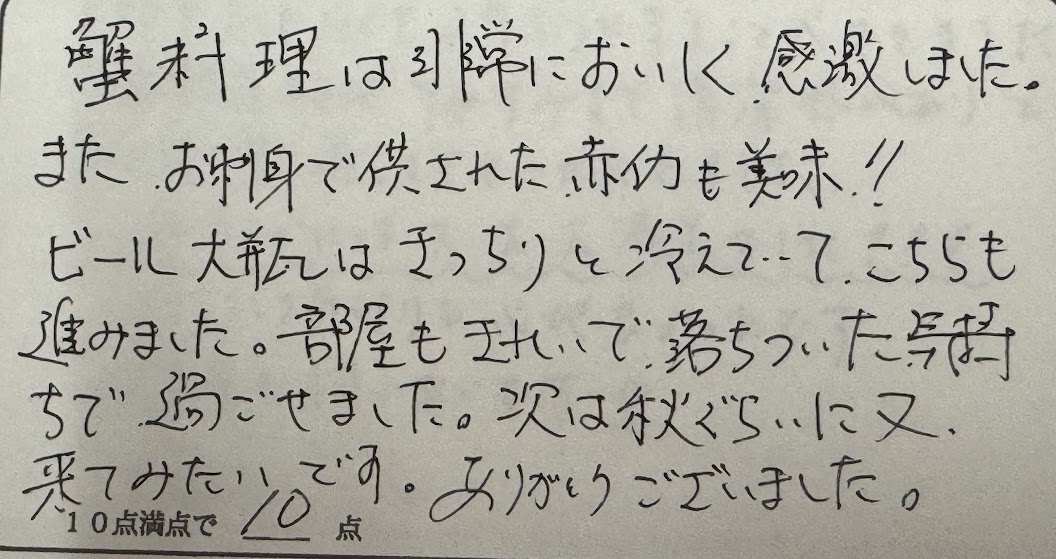 蟹料理は非常においしく、感激しました。
また、お刺身で供された赤イカも美味!!
ビール大瓶はきっちりと冷えていて、こちらも
進みました。部屋もきれいで、落ちついた気持
ちで、過ごせました。次は秋ぐらいに又、
来てみたいです。ありがとうございました。
10点満点で 10 点